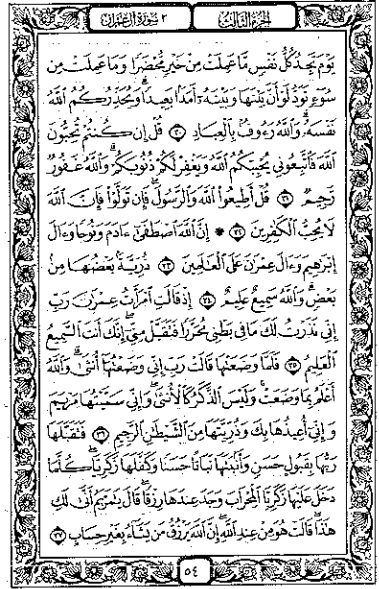 الجزء الثالث
٣ سورة آل عمران
يَوْمَ تَجِدُ كُلُّ نَفْسٍ مَّا عَمِلَتْ مِنْ خَيْرٍ مُّحْضَرًا وَمَا عَمِلَتْ مِن
سُوٓءٍ تَوَدُّ لَوْ أَنَّ بَيْنَهَا وَبَيْنَهُۥٓ أَمَدًۢا بَعِيدًا ۗ وَيُحَذِّرُكُمُ ٱللَّهُ
نَفْسَهُۥ ۗ وَٱللَّهُ رَءُوفٌۢ بِٱلْعِبَادِ ٣٠ قُلْ إِن كُنتُمْ تُحِبُّونَ
ٱللَّهَ فَٱتَّبِعُونِى يُحْبِبْكُمُ ٱللَّهُ وَيَغْفِرْ لَكُمْ ذُنُوبَكُمْ ۗ وَٱللَّهُ غَفُورٌ
رَّحِيمٌ ٣١ قُلْ أَطِيعُوا۟ ٱللَّهَ وَٱلرَّسُولَ ۖ فَإِن تَوَلَّوْا۟ فَإِنَّ ٱللَّهَ
لَا يُحِبُّ ٱلْكَـٰفِرِينَ ٣٢ ۞ إِنَّ ٱللَّهَ ٱصْطَفَىٰٓ ءَادَمَ وَنُوحًا وَءَالَ
إِبْرَٰهِيمَ وَءَالَ عِمْرَٰنَ عَلَى ٱلْعَـٰلَمِينَ ٣٣ ذُرِّيَّةًۢ بَعْضُهَا مِنۢ
بَعْضٍ ۗ وَٱللَّهُ سَمِيعٌ عَلِيمٌ ٣٤ إِذْ قَالَتِ ٱمْرَأَتُ عِمْرَٰنَ رَبِّ
إِنِّى نَذَرْتُ لَكَ مَا فِى بَطْنِى مُحَرَّرًا فَتَقَبَّلْ مِنِّىٓ ۖ إِنَّكَ أَنتَ ٱلسَّمِيعُ
ٱلْعَلِيمُ ٣٥ فَلَمَّا وَضَعَتْهَا قَالَتْ رَبِّ إِنِّى وَضَعْتُهَآ أُنثَىٰ وَٱللَّهُ
أَعْلَمُ بِمَا وَضَعَتْ وَلَيْسَ ٱلذَّكَرُ كَٱلْأُنثَىٰ ۖ وَإِنِّى سَمَّيْتُهَا مَرْيَمَ
وَإِنِّىٓ أُعِيذُهَا بِكَ وَذُرِّيَّتَهَا مِنَ ٱلشَّيْطَـٰنِ ٱلرَّجِيمِ ٣٦ فَتَقَبَّلَهَا
رَبُّهَا بِقَبُولٍ حَسَنٍ وَأَنۢبَتَهَا نَبَاتًا حَسَنًا وَكَفَّلَهَا زَكَرِيَّا ۖ كُلَّمَا
دَخَلَ عَلَيْهَا زَكَرِيَّا ٱلْمِحْرَابَ وَجَدَ عِندَهَا رِزْقًا ۖ قَالَ يَـٰمَرْيَمُ أَنَّىٰ لَكِ
هَـٰذَا ۖ قَالَتْ هُوَ مِنْ عِندِ ٱللَّهِ ۖ إِنَّ ٱللَّهَ يَرْزُقُ مَن يَشَآءُ بِغَيْرِ حِسَابٍ ٣٧
٥٤